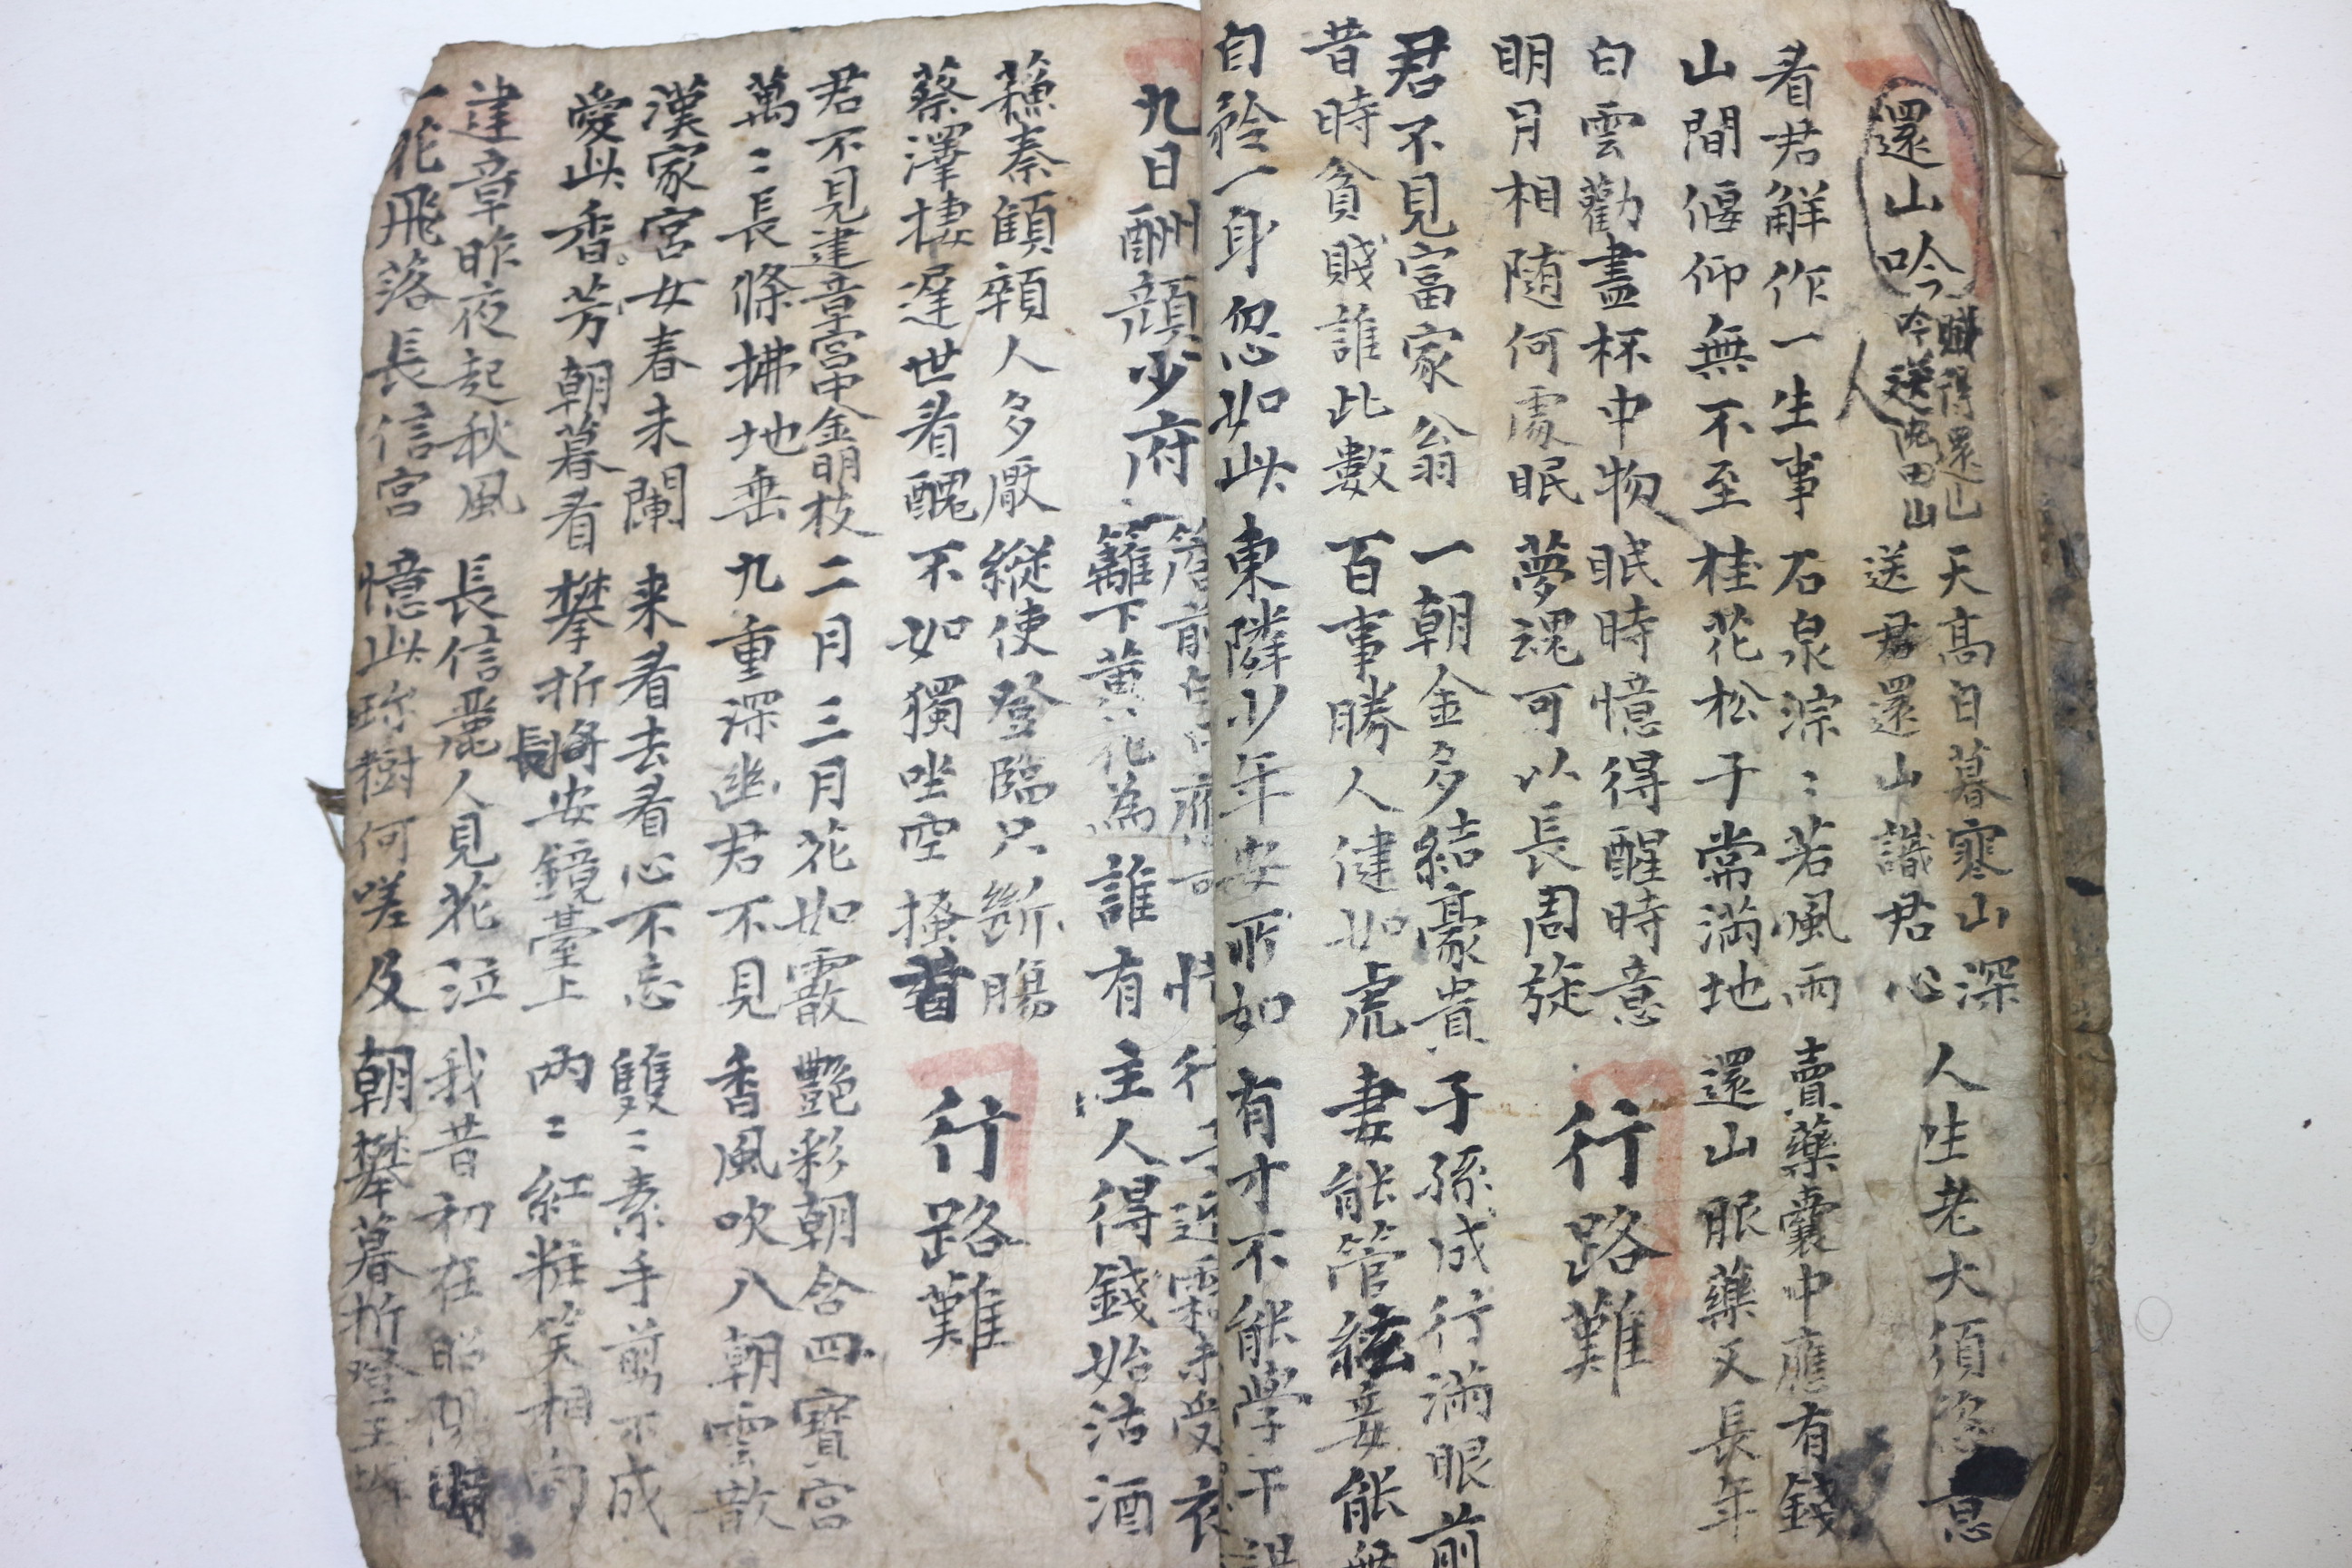 還山吟
賦得還山
吟送沈田山
人
天高日暮寒山深
送君還山識君心
人生老大須恣意
看君解作一生事
山間偃仰無不至
石泉淙〻若風雨
桂花松子常滿地
賣藥囊中應有錢
還山服藥又長年
白雲勸盡杯中物
明月相随何處眠
眠時憶得醒時意
夢魂可以長周旋
行路難
君不見富家翁
昔時貧賤誰此數
一朝金多結豪貴
百事勝人健如虎
子孫成行滿眼前
妻能管絃妾能舞
自矜一身忽如此
東隣少年安所如
有才不能學干謁
九日酬顔少府
簷前白日應可
籬下黄花為誰有
行子迎霜未受衣
主人得錢始沽酒
蘓秦顦顇人多厭
蔡澤棲遲世看醜
縱使登臨只斷膓
不如獨坐空搔首
行路難
君不見建章宮中金明枝
萬〻長條拂地垂
二月三月花如霰
九重深幽君不見
艷彩朝含四寶宮
香風吹八朝雲散
漢家宮女春未闌
愛此香芳朝暮看
来看去看心不忘
攀折將安鏡臺上
長
雙〻素手剪不成
兩〻紅粧笑相向
建章昨夜起秋風
一花飛落長信宮
長信麗人見花泣
憶此珎樹何嗟及
我昔初在昭陽時
朝攀暮折登玉墀